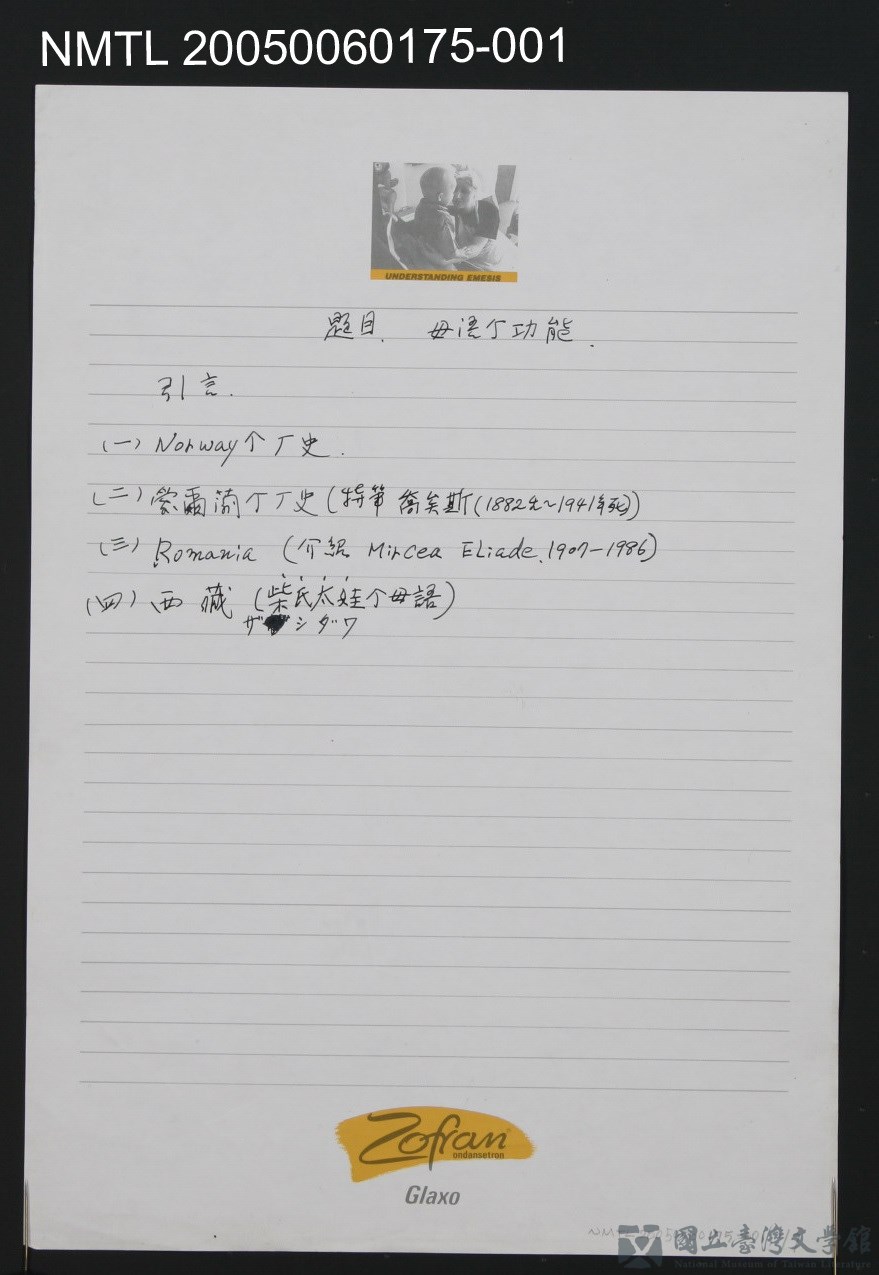 NMTL 20050060175-001
UNDERSTANDING EMESIS
題目. 母語个功能.
引言.
(一) Norway个厂史.
(二) 愛爾蘭个厂史(特筆 喬矣斯(1882生~1941年死))
(三) Romania (介紹 Mircea Eliade.1907-1986)
(四) 西藏 (柴氏太娃个母語)
ザシダワ
Zofran
ondansetron
Glaxo
國立臺灣文學館
National Museum of Taiwan Literature